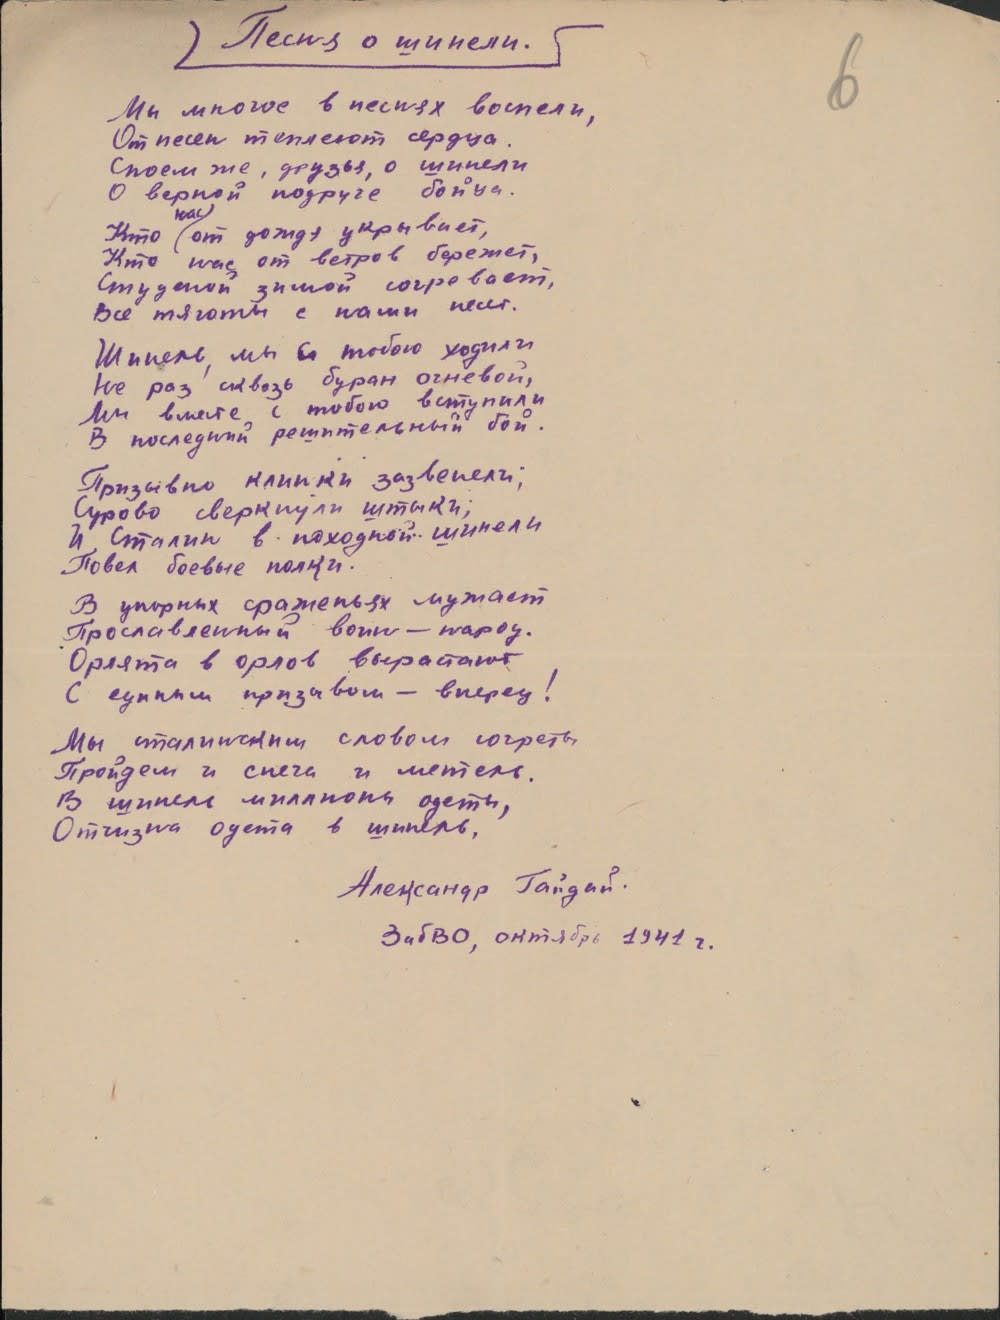 Песня о шинели.
6
Мы многое в песнях воспели,
От песен теплеют сердца.
Споем же, друзья, о шинели
О верной подруге бойца.
Кто нас от дождя укрывает,
Кто нас от ветров бережет,
Студеной зимой согревает,
Все тяготы с нами несет.
Шинель, мы с тобою ходили
Не раз сквозь буран огневой,
Мы вместе с тобою вступили
В последний решительный бой.
Призывно клинки зазвенели;
Сурово сверкнули штыки;
И Сталин в походной шинели
Повел боевые полки.
В упорных сраженьях мужает
Прославленный воин – народ.
Орлята в орлов вырастают
С единым призывом – вперед!
Мы сталинским словом согреты
Пройдем и снега и метель.
В шинель миллионы одеты,
Отчизна одета в шинель.
Александр Гайдай.
ЗабВО, октябрь 1941 г.